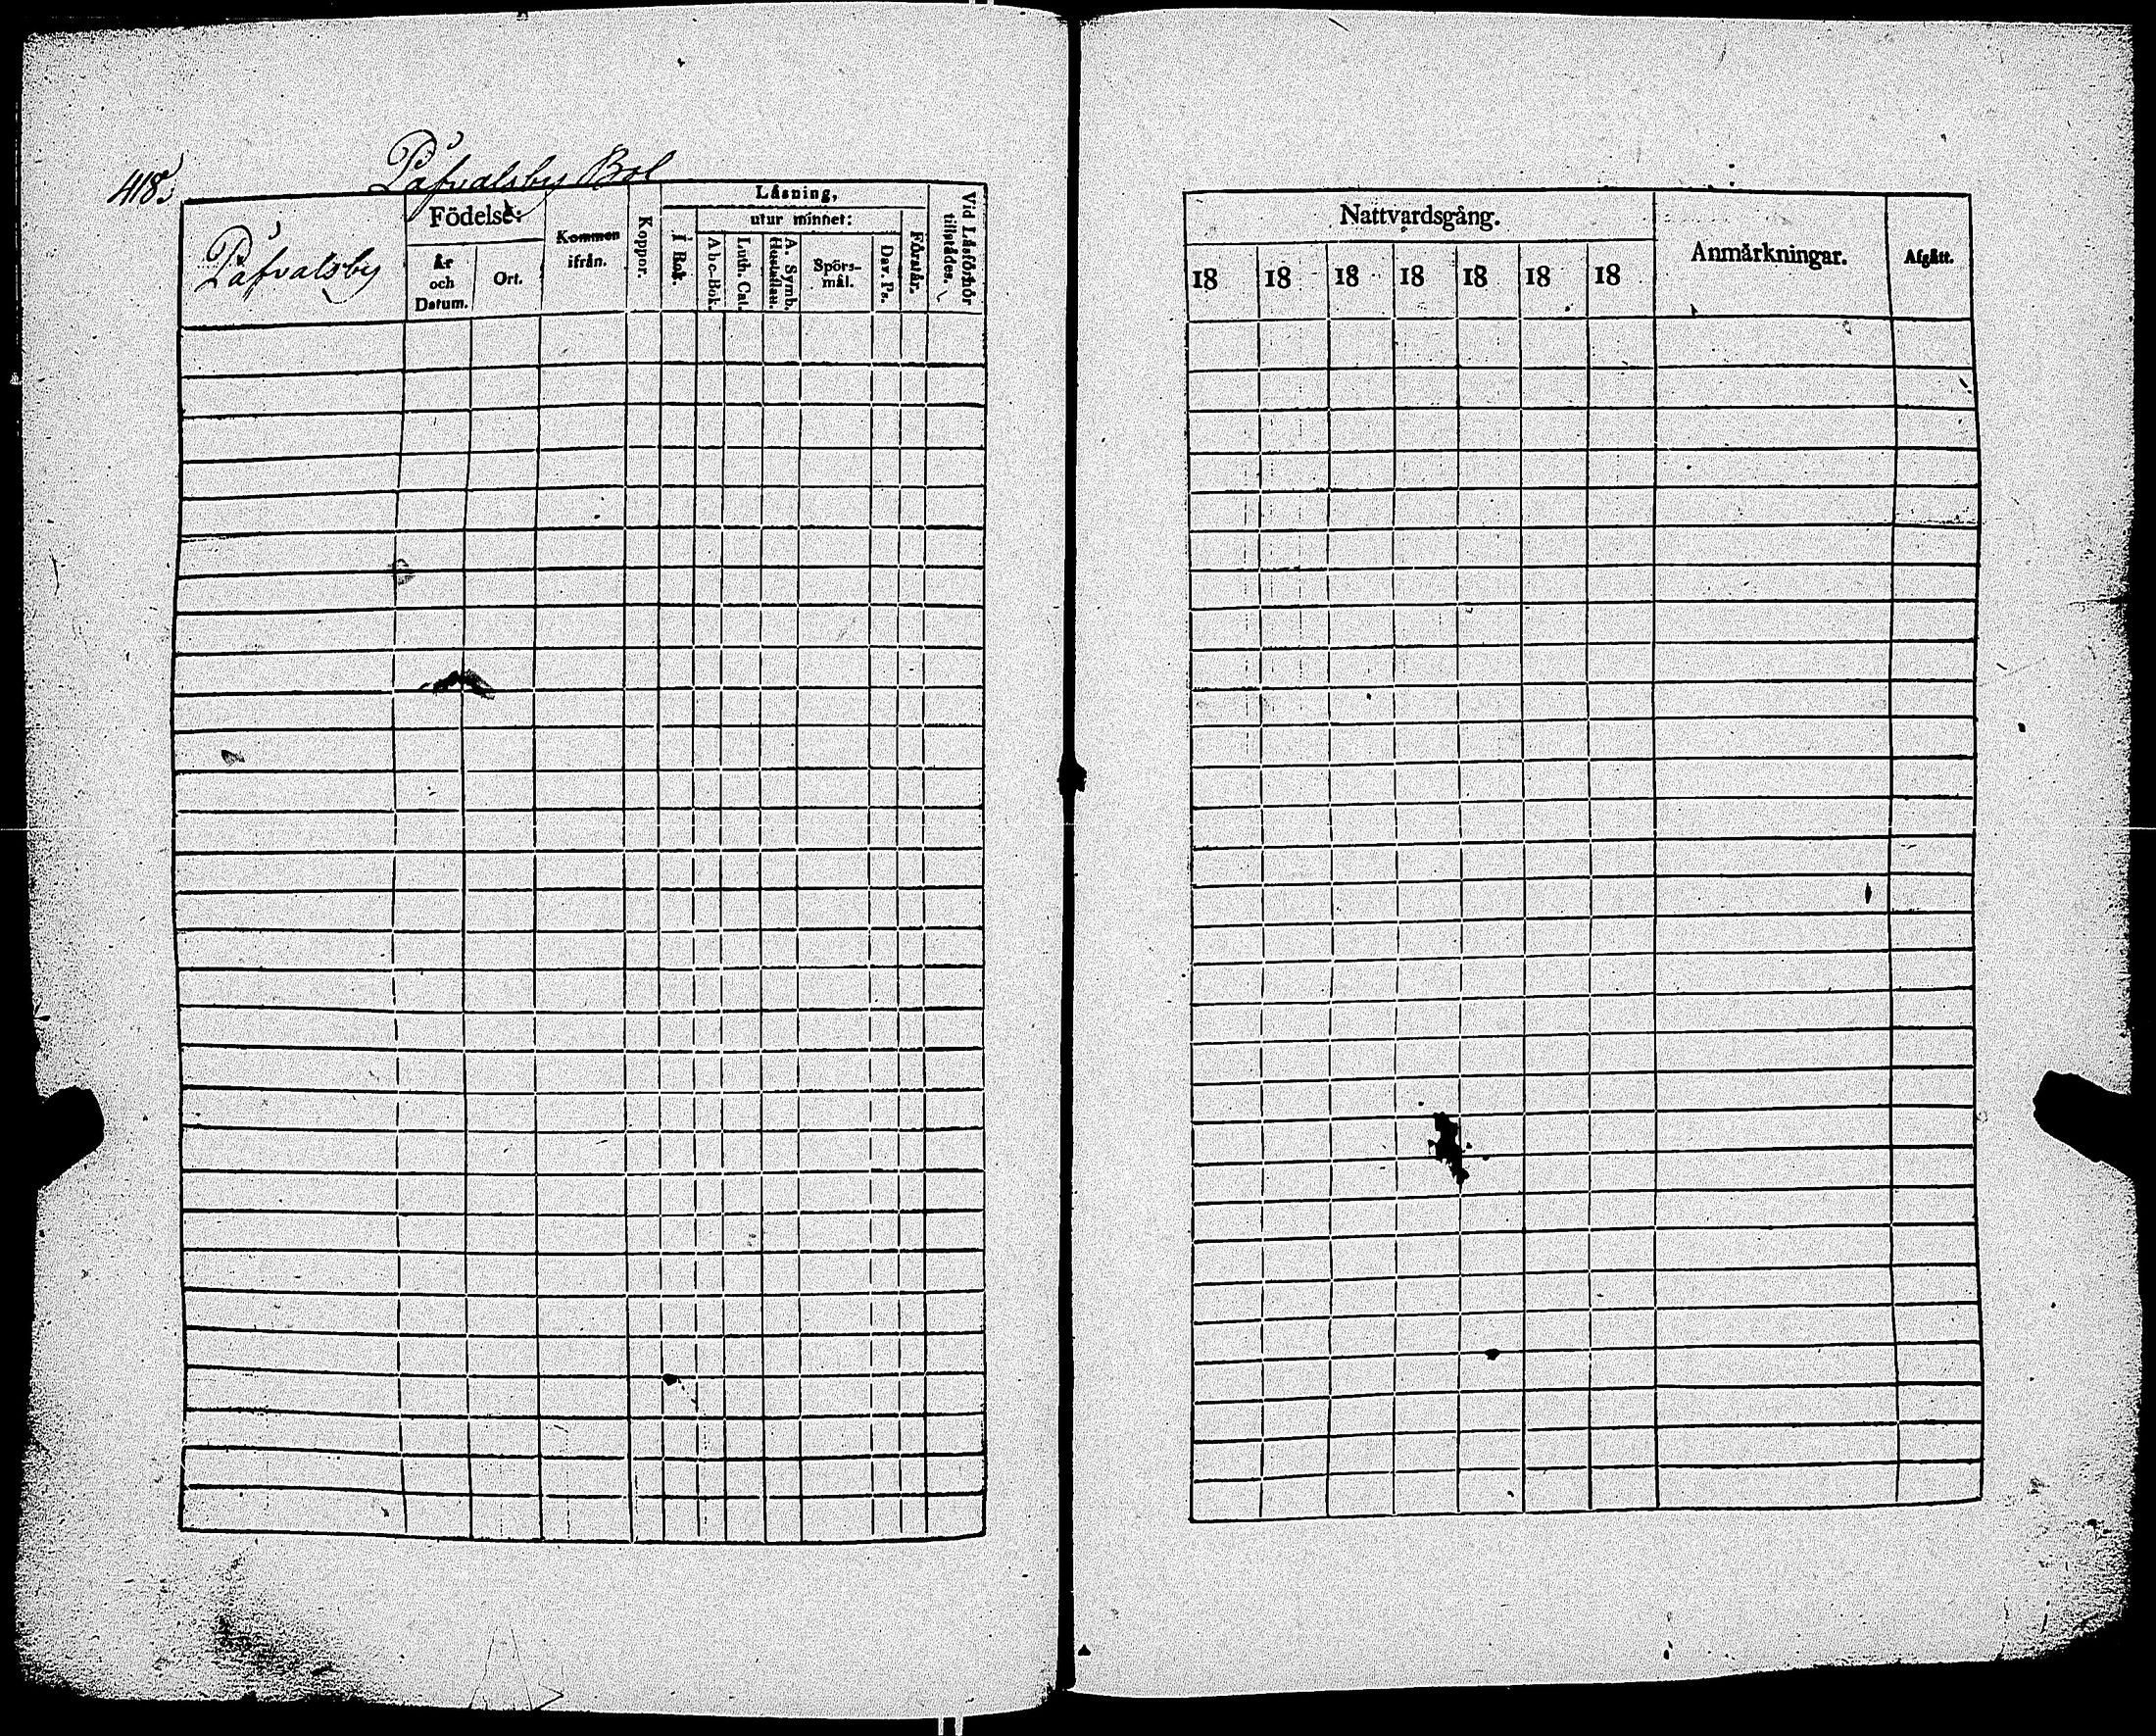 Påfvalsby Bol
418.
Påfvalsby
Födelse:
År och Datum.
Ort.
Kommen ifrån.
Koppor.
Läsning,
I Bok.
utur minnet:
Abc-Bok.
Luth. Cat.
A. Symb. Hustaflan.
Spörs-mål.
Dav. Ps.
Förstår.
Vid Läsförhör tillstädes.
Nattvardsgång.
18 18 18 18 18 18 18
Anmärkningar.
Afgått.